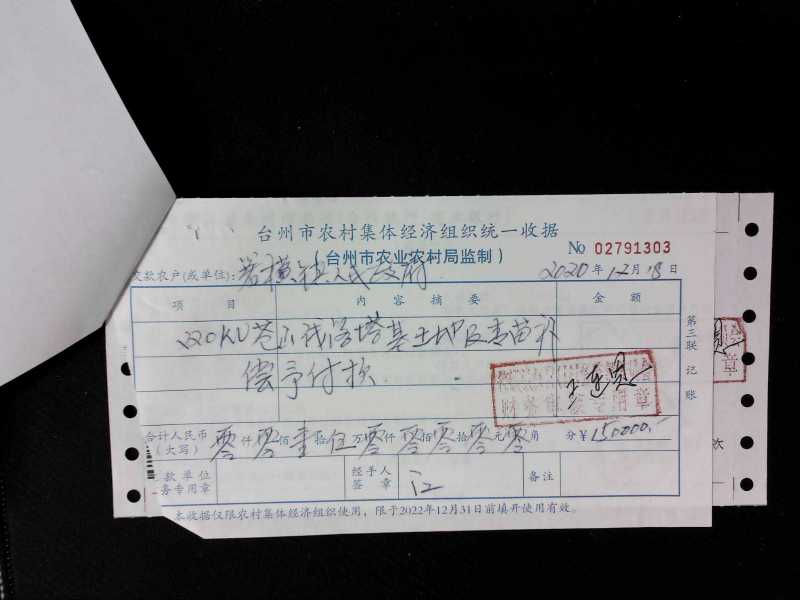 台州市农村集体经济组织统一收据
(台州市农业农村局监制)
No 02791303
交款农户(或单位): 箬横镇人民政府
2020 年 12 月 18 日
项 目 内 容 摘 要 金 额
220KV 塔基土地及青苗补
偿予付款
财务 专用章
合计人民币 零仟零佰壹拾伍万零仟零佰零拾零元零角 分 ¥150000.-
(大写)
款单位 经手人 江 备注
务专用章 签 章
本收据仅限农村集体经济组织使用，限于2022年12月31日前填开使用有效。
第三联 记账
次